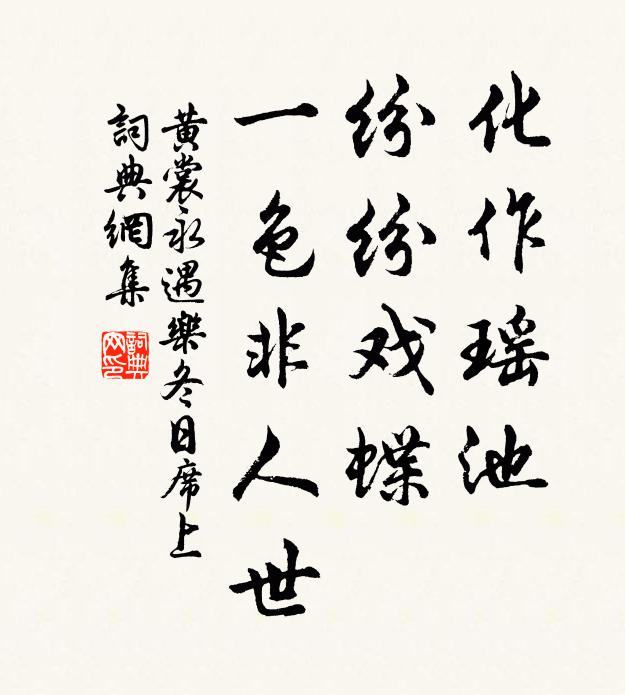 化作瑶池
纷纷戏蝶
一色非人世
黄裳永遇樂冬日席上
詞典網集
詞典网印